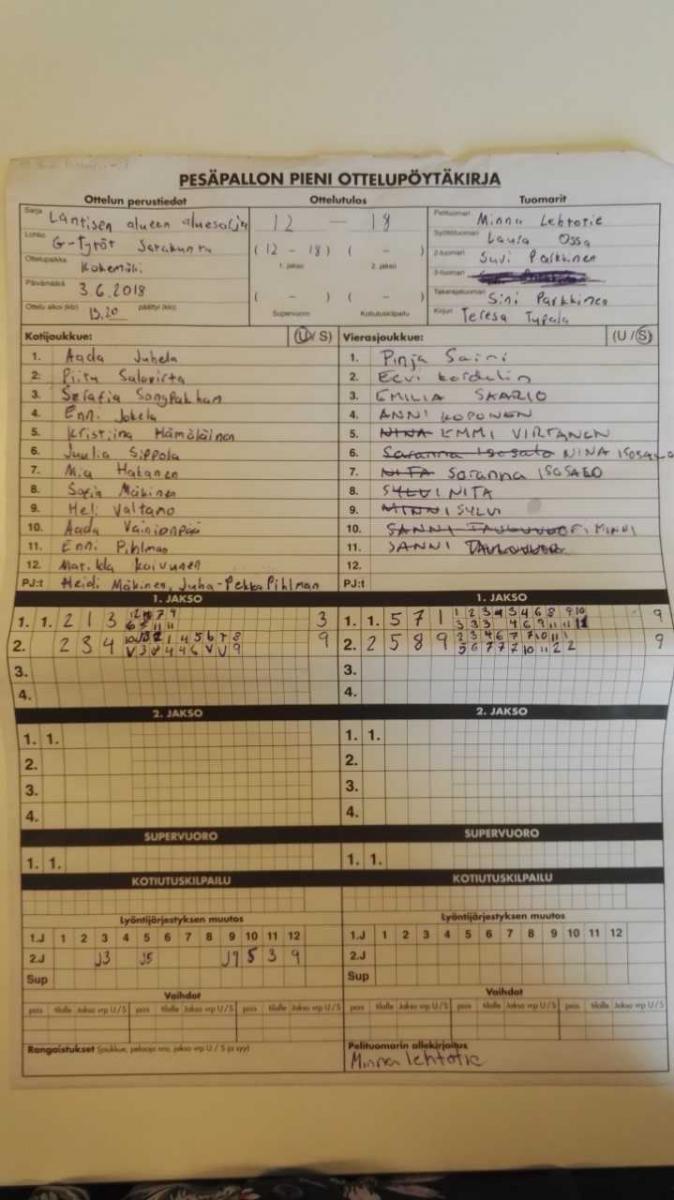 PESÄPALLON PIENI OTTELUPÖYTÄKIRJA
Ottelun perustiedot Ottelutulos Tuomarit
Sarja Läntisen alueen aluesarja 12 - 18 Pelituomari Minna Lehtotie
Lohko G-Tytöt Satakunta (12 - 18) ( - ) Syöttötuomari Laura Ossa
Ottelupaikka Kokemäki 1. jakso 2. jakso 2-tuomari Suvi Parkkinen
Päivämäärä 3.6.2018 3-tuomari
Ottelu alkoi (klo) 13.20 päättyi (klo) ( - ) ( - ) Takarajatuomari Sini Parkkinen
Supervuoro Kotiutuskilpailu Kirjuri Teresa Tupala
Kotijoukkue: (U/S) Vierasjoukkue: (U/S)
1. Aada Juhela 1. Pinja Saini
2. Piitu Salovirta 2. Eevi Kordelin
3. Serafia 3. EMILIA SKARIO
4. Enni Jokela 4. ANNI KOPONEN
5. Kristiina Hämäläinen 5. NINA EMMI VIRTANEN
6. Juulia Sippola 6. Saranna Isosalo NINA ISOSALO
7. Mia Hakanen 7. NITA Saranna ISOSALO
8. Sofia Mäkinen 8. SYLVI NITA
9. Heli Valtamo 9. MINNI SYLVI
10. Aada Vainionpää 10. SANNI MINNI
11. Enni Pihlman 11. SANNI
12. Matilda Koivunen 12.
PJ:t Heidi Mäkinen, Juha-Pekka Pihlman PJ:t
1. JAKSO 1. JAKSO
1. 1. 2 1 3 3 1. 1. 5 7 1 9
2. 2 3 4 9 2. 2 5 8 9 9
3. 3.
4. 4.
2. JAKSO 2. JAKSO
1. 1. 1. 1.
2. 2.
3. 3.
4. 4.
SUPERVUORO SUPERVUORO
1. 1. 1. 1.
KOTIUTUSKILPAILU KOTIUTUSKILPAILU
Lyöntijärjestyksen muutos Lyöntijärjestyksen muutos
1.J 1 2 3 4 5 6 7 8 9 10 11 12 1.J 1 2 3 4 5 6 7 8 9 10 11 12
2.J J3 J5 J9 5 3 9 2.J
Sup Sup
Vaihdot Vaihdot
pois tilalle Jakso vrp U/S pois tilalle Jakso vrp U/S pois tilalle Jakso vrp U/S pois tilalle Jakso vrp U/S pois tilalle Jakso vrp U/S pois tilalle Jakso vrp U/S
Rangaistukset (joukkue, pelaaja nro, jakso vrp U / S ja syy) Pelituomarin allekirjoitus
Minna Lehtotie